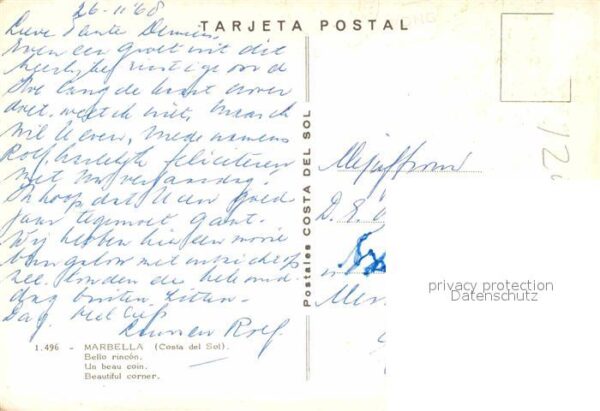 26-11-'68
TARJETA POSTAL
Lieve Tante
Even een groet uit dit
heerlijke oord
Hoe lang de kaart erover
doet, weet ik niet, maar ik
wil U even, mede namens
Rolf hartelijk feliciteren
met Uw verjaardag.
Ik hoop dat U een goed
jaar tegemoet gaat.
Wij hebben hier een mooie
bungalow met uitzicht op
zee. konden de hele mid-
dag buiten zitten.
Dag, veel liefs
Rolf.
Postales COSTA DEL SOL
Mejuffrouw
D. E.
1.496 - MARBELLA (Costa del Sol).
Bello rincón.
Un beau coin.
Beautiful corner.
privacy protection
Datenschutz